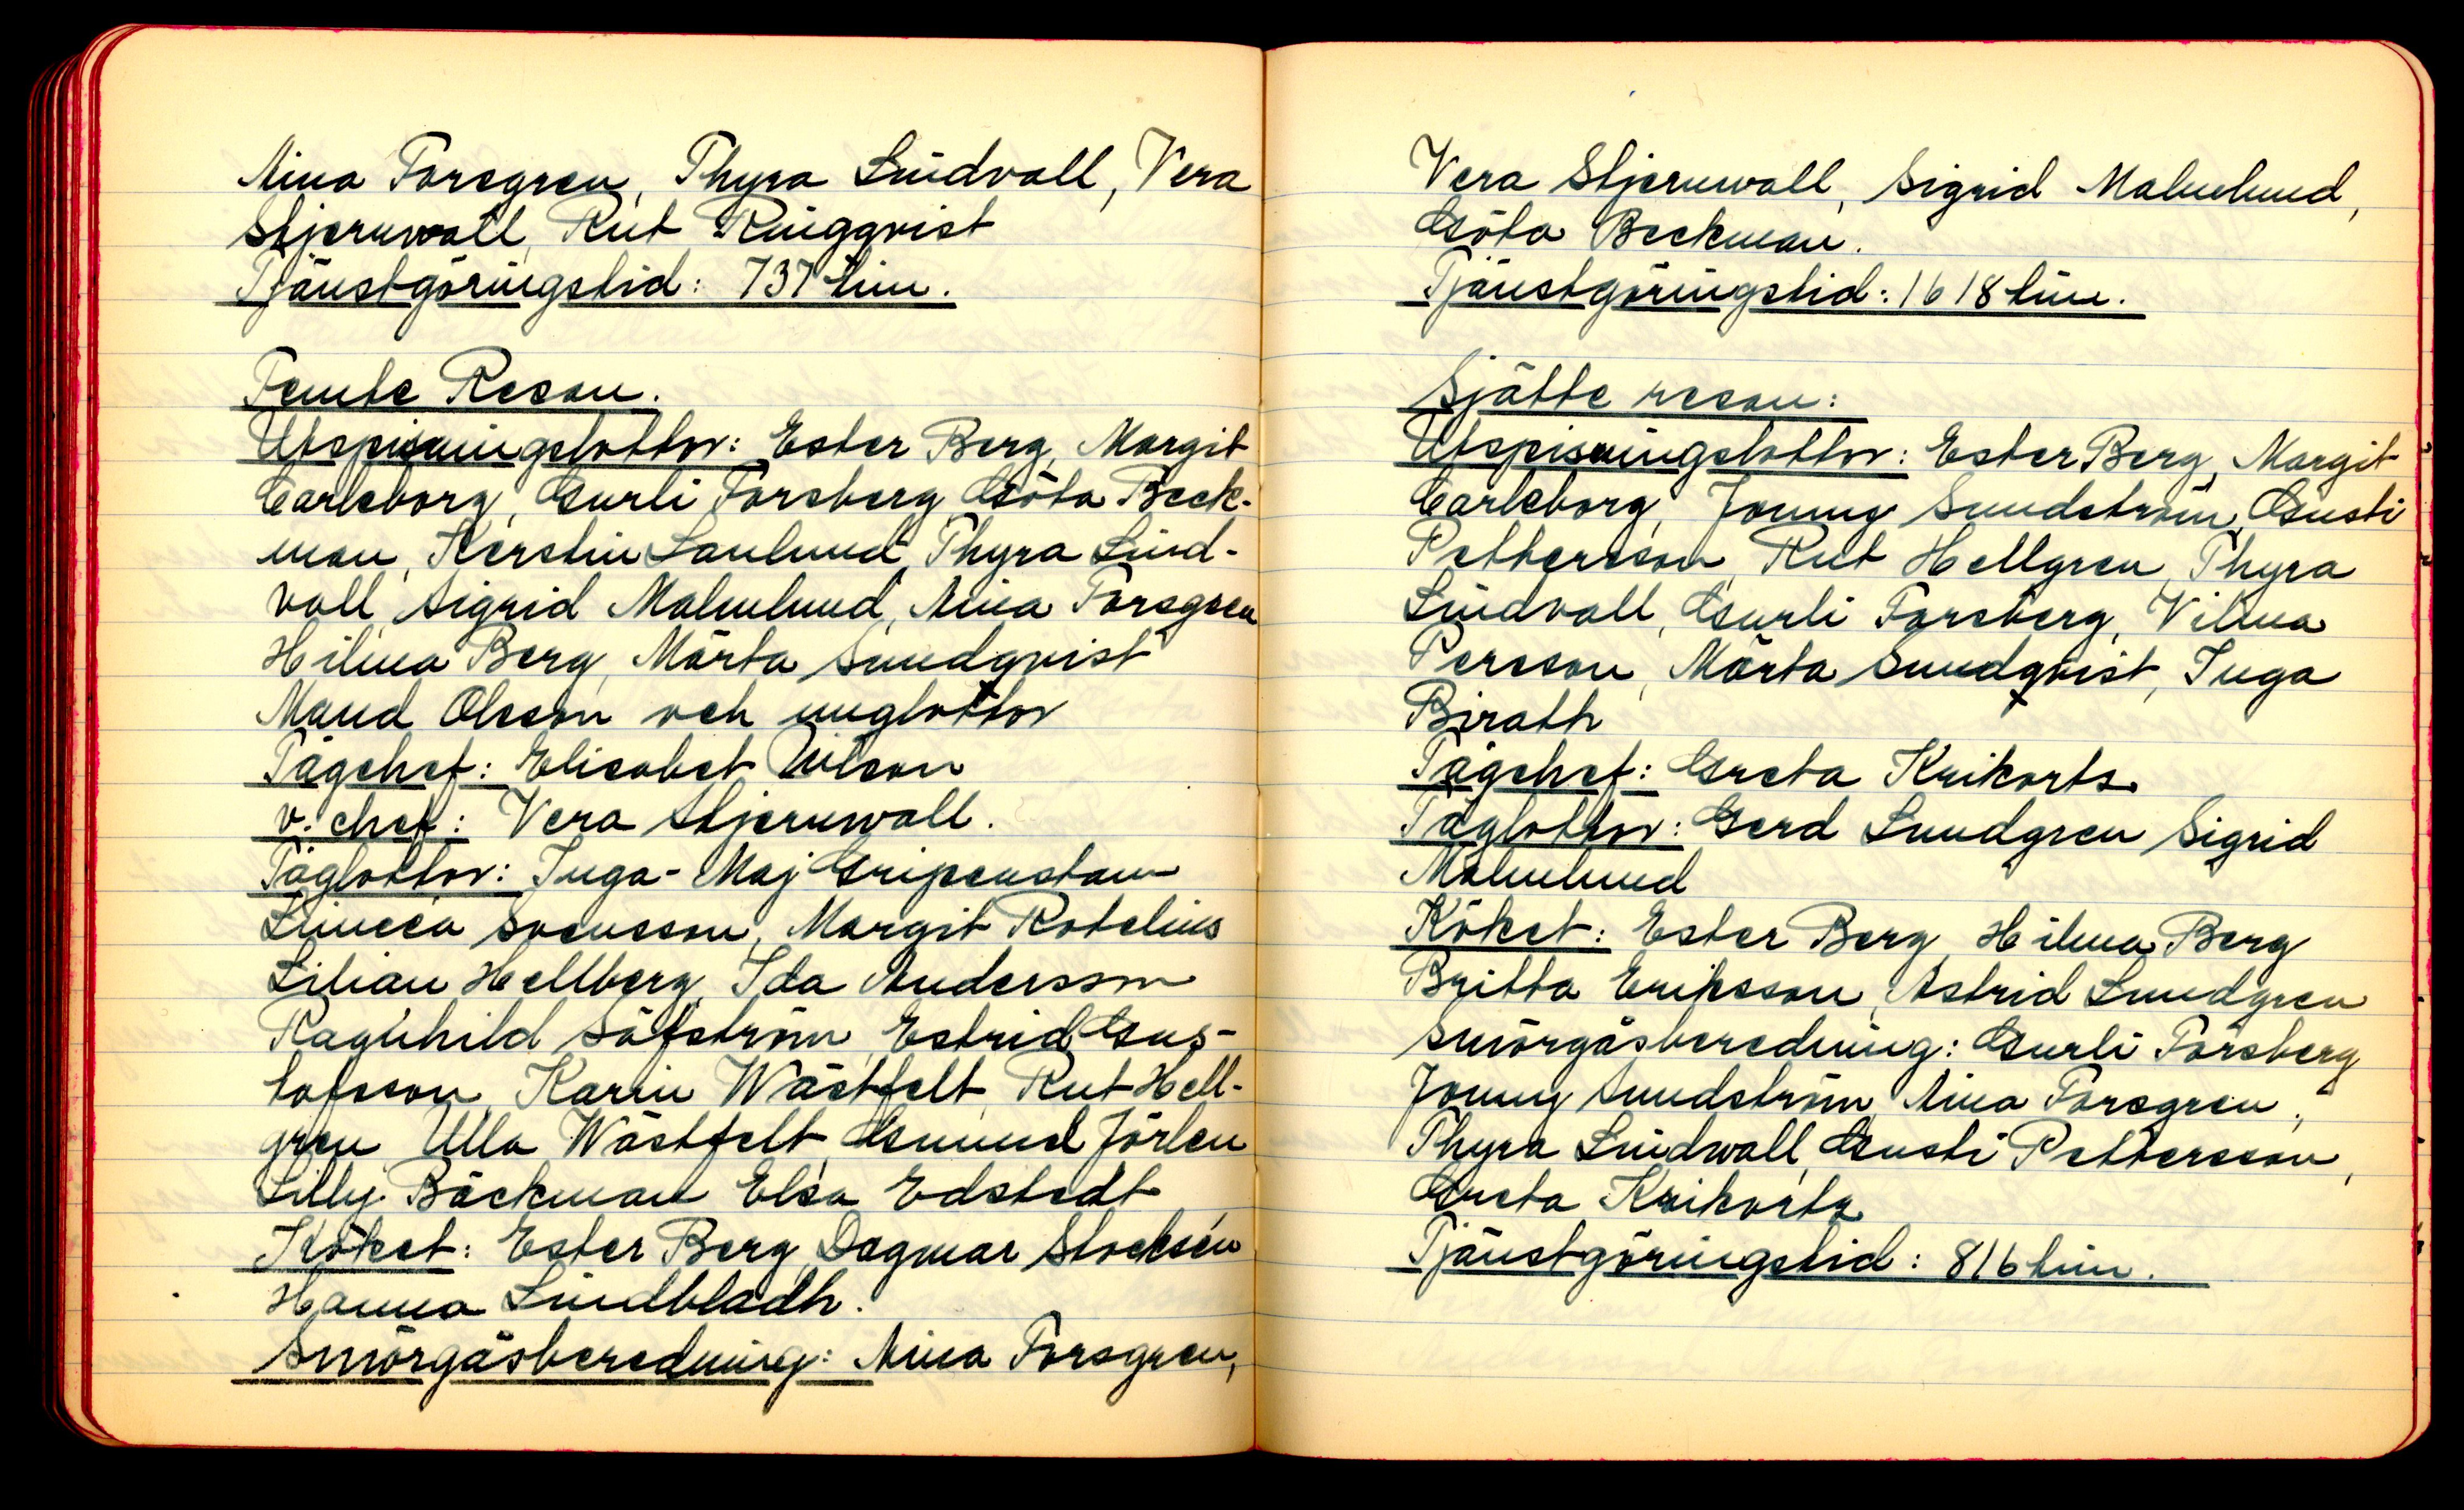 Nina Forsgren, Thyra Lindvall, Vera
Stjernwall, Rut Ringqvist
Tjänstgöringstid: 737 tim.
Femte Resan.
Utspisningslottor: Ester Berg, Margit
Carlsborg, Gurli Forsberg, Göta Beck-
man, Kerstin Lanlund, Thyra Lind-
vall, Sigrid Malmlund, Nina Forsgren
Hilma Berg, Märta Sundqvist
Maud Olsson och unglottor
Tågchef: Elisabet Wilson
v. chef: Vera Stjernwall.
Tåglottor: Inga-Maj Gripenstam
Linnea Svensson, Margit Rotelius
Lilian Hellberg, Ida Andersson
Ragnhild Säfström, Estrid Gus-
tafsson, Karin Wästfelt, Rut Hell-
gren, Ulla Wästfelt, Gunnel Jörlen
Lilly Bäckman Elsa Edstedt
Köket: Ester Berg, Dagmar Stocksén
Hanna Lindbladh.
Smörgåsberedning: Nina Forsgren,
Vera Stjernwall, Sigrid Malmlund,
Göta Beckman.
Tjänstgöringstid: 1618 tim.
Sjätte resan:
Utspisningslottor: Ester Berg, Margit
Carlsborg, Jonny Sundström, Gusti
Pettersson, Rut Hellgren, Thyra
Lindvall, Gurli Forsberg, Vilma
Persson, Märta Sundqvist, Inga
Birath
Tågchef: Greta Krikortz
Tåglottor: Gerd Lundgren Sigrid
Malmlund
Köket: Ester Berg, Hilma Berg
Britta Eriksson, Astrid Lundgren
Smörgåsberedning: Gurli Forsberg
Jonny Sundström, Nina Forsgren,
Thyra Lindwall, Gusti Pettersson,
Greta Krikortz
Tjänstgöringstid: 816 tim.